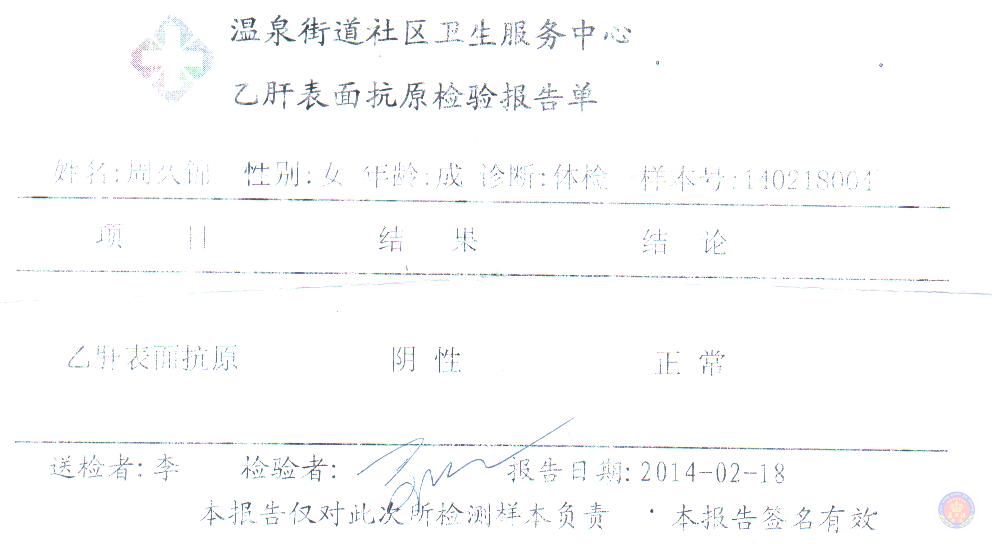 温泉街道社区卫生服务中心
乙肝表面抗原检验报告单
姓名:周久 性别:女 年龄:成 诊断:体检 样本号:140218004
项 目 结 果 结 论
乙肝表面抗原 阴 性 正 常
送检者:李 检验者: 报告日期:2014-02-18
本报告仅对此次所检测样本负责 · 本报告签名有效